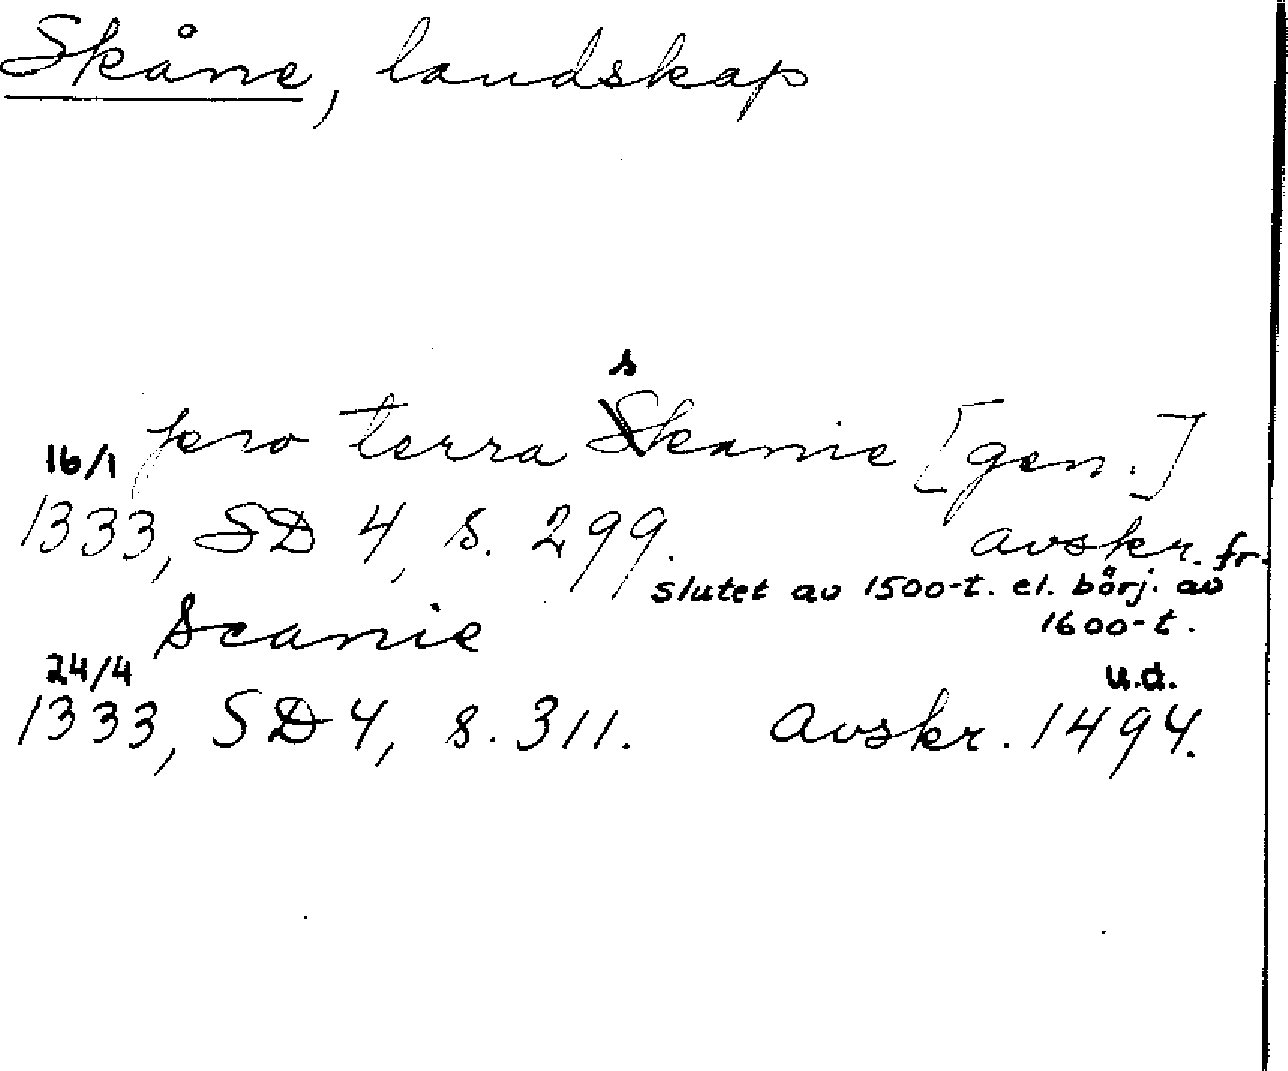 Skåne, landskap
s
pro terra Skanie [gen.]
16/1
1333, SD 4, s. 299. avskr. fr.
slutet av 1500-t. el. börj. av
1600-t.
Scanie
24/4 u.d.
1333, SD 4, s. 311. Avskr. 1494.